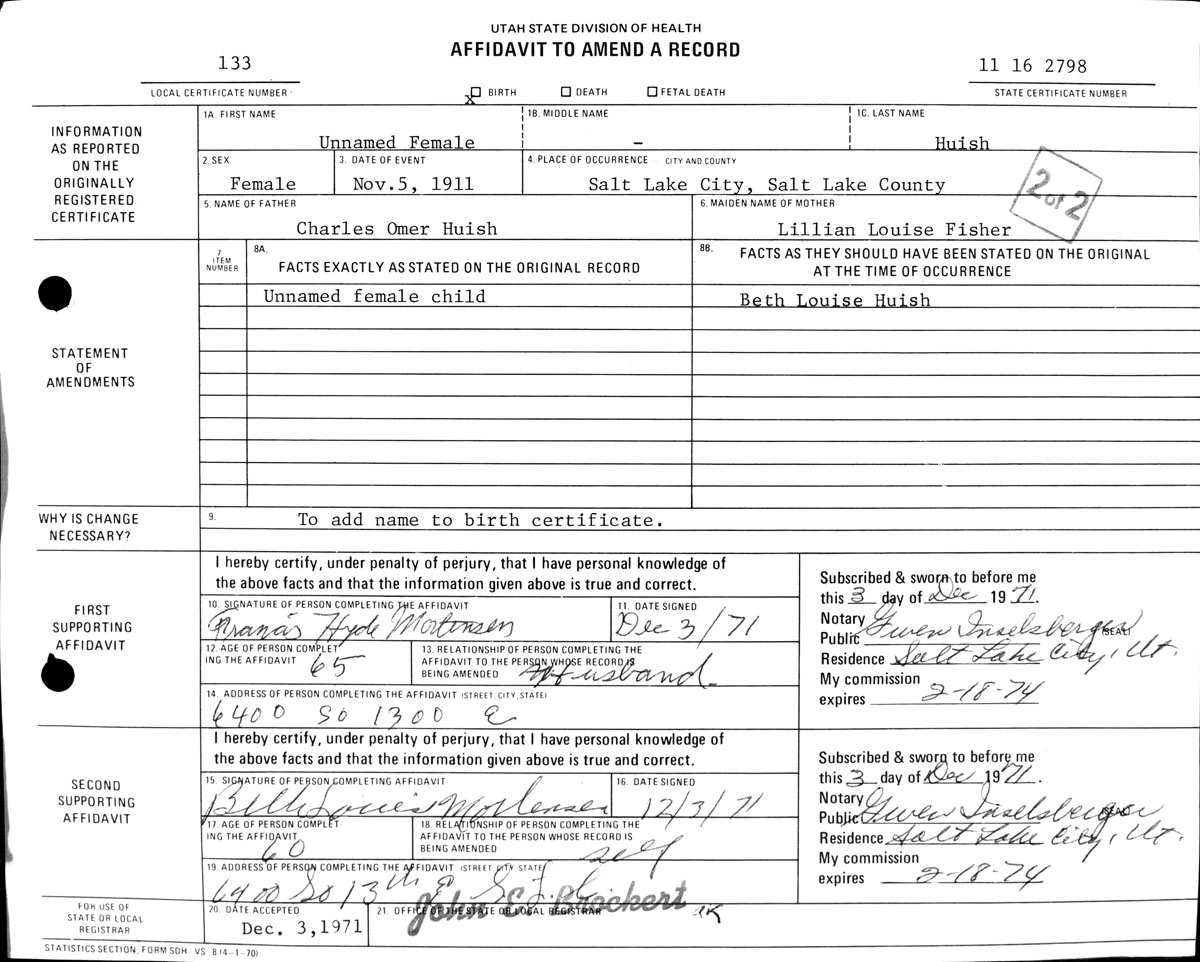 UTAH STATE DIVISION OF HEALTH
AFFIDAVIT TO AMEND A RECORD
133
LOCAL CERTIFICATE NUMBER
X BIRTH DEATH FETAL DEATH
11 16 2798
STATE CERTIFICATE NUMBER
INFORMATION
AS REPORTED
ON THE
ORIGINALLY
REGISTERED
CERTIFICATE
1A. FIRST NAME
Unnamed Female
1B. MIDDLE NAME
-
1C. LAST NAME
Huish
2. SEX
Female
3. DATE OF EVENT
Nov.5, 1911
4. PLACE OF OCCURRENCE CITY AND COUNTY
Salt Lake City, Salt Lake County
2 of 2
5. NAME OF FATHER
Charles Omer Huish
6. MAIDEN NAME OF MOTHER
Lillian Louise Fisher
STATEMENT
OF
AMENDMENTS
7
ITEM
NUMBER
8A.
FACTS EXACTLY AS STATED ON THE ORIGINAL RECORD
8B. FACTS AS THEY SHOULD HAVE BEEN STATED ON THE ORIGINAL
AT THE TIME OF OCCURRENCE
Unnamed female child
Beth Louise Huish
WHY IS CHANGE
NECESSARY?
9. To add name to birth certificate.
FIRST
SUPPORTING
AFFIDAVIT
I hereby certify, under penalty of perjury, that I have personal knowledge of
the above facts and that the information given above is true and correct.
10. SIGNATURE OF PERSON COMPLETING THE AFFIDAVIT
Francis Hyde Mortensen
11. DATE SIGNED
Dec 3/71
12. AGE OF PERSON COMPLET
ING THE AFFIDAVIT 65
13. RELATIONSHIP OF PERSON COMPLETING THE
AFFIDAVIT TO THE PERSON WHOSE RECORD IS
BEING AMENDED Husband
14. ADDRESS OF PERSON COMPLETING THE AFFIDAVIT (STREET, CITY, STATE)
6400 So 1300 E
Subscribed & sworn to before me
this 3 day of Dec 19 71.
Notary
Public Gwen Inselsberger (SEAL)
Residence Salt Lake City, Ut.
My commission
expires 2-18-74
SECOND
SUPPORTING
AFFIDAVIT
I hereby certify, under penalty of perjury, that I have personal knowledge of
the above facts and that the information given above is true and correct.
15. SIGNATURE OF PERSON COMPLETING AFFIDAVIT
Beth Louise Mortensen
16. DATE SIGNED
12/3/71
17. AGE OF PERSON COMPLET
ING THE AFFIDAVIT
60
18. RELATIONSHIP OF PERSON COMPLETING THE
AFFIDAVIT TO THE PERSON WHOSE RECORD IS
BEING AMENDED self
19. ADDRESS OF PERSON COMPLETING THE AFFIDAVIT (STREET, CITY, STATE)
6400 So 13th E
Subscribed & sworn to before me
this 3 day of Dec 19 71.
Notary
Public Gwen Inselsberger
Residence Salt Lake City, Ut.
My commission
expires 2-18-74
FOR USE OF
STATE OR LOCAL
REGISTRAR
20. DATE ACCEPTED
Dec. 3,1971
21. OFFICE OF THE STATE OR LOCAL REGISTRAR
John E. Brockert
STATISTICS SECTION, FORM SDH VS 8 (4-1-70)